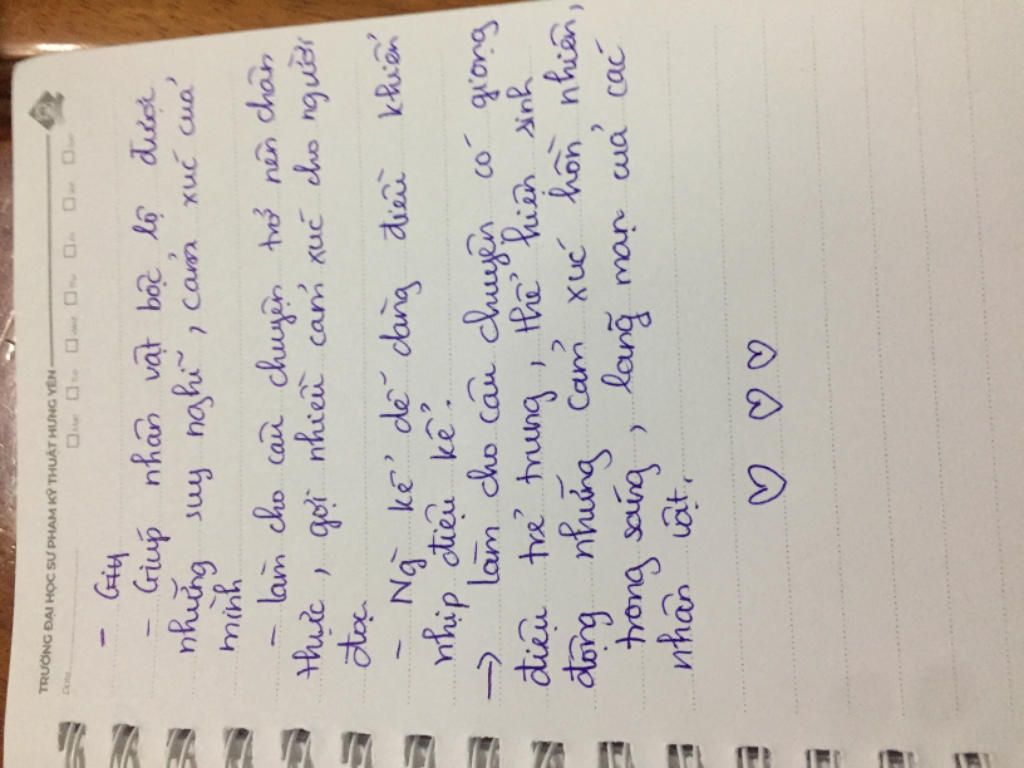 TRƯỜNG ĐẠI HỌC SƯ PHẠM KỸ THUẬT HƯNG YÊN
Date
- Gty
- Giúp nhân vật bộc lộ được
những suy nghĩ, cảm xúc của
mình
- làm cho câu chuyện trở nên chân
thực, gợi nhiều cảm xúc cho người
đọc
- Ng kể dễ dàng điều khiển
nhịp điệu kể.
→ làm cho câu chuyện có giọng
điệu trẻ trung, thể hiện sinh
động những cảm xúc hồn nhiên,
trong sáng, lãng mạn của các
nhân vật.